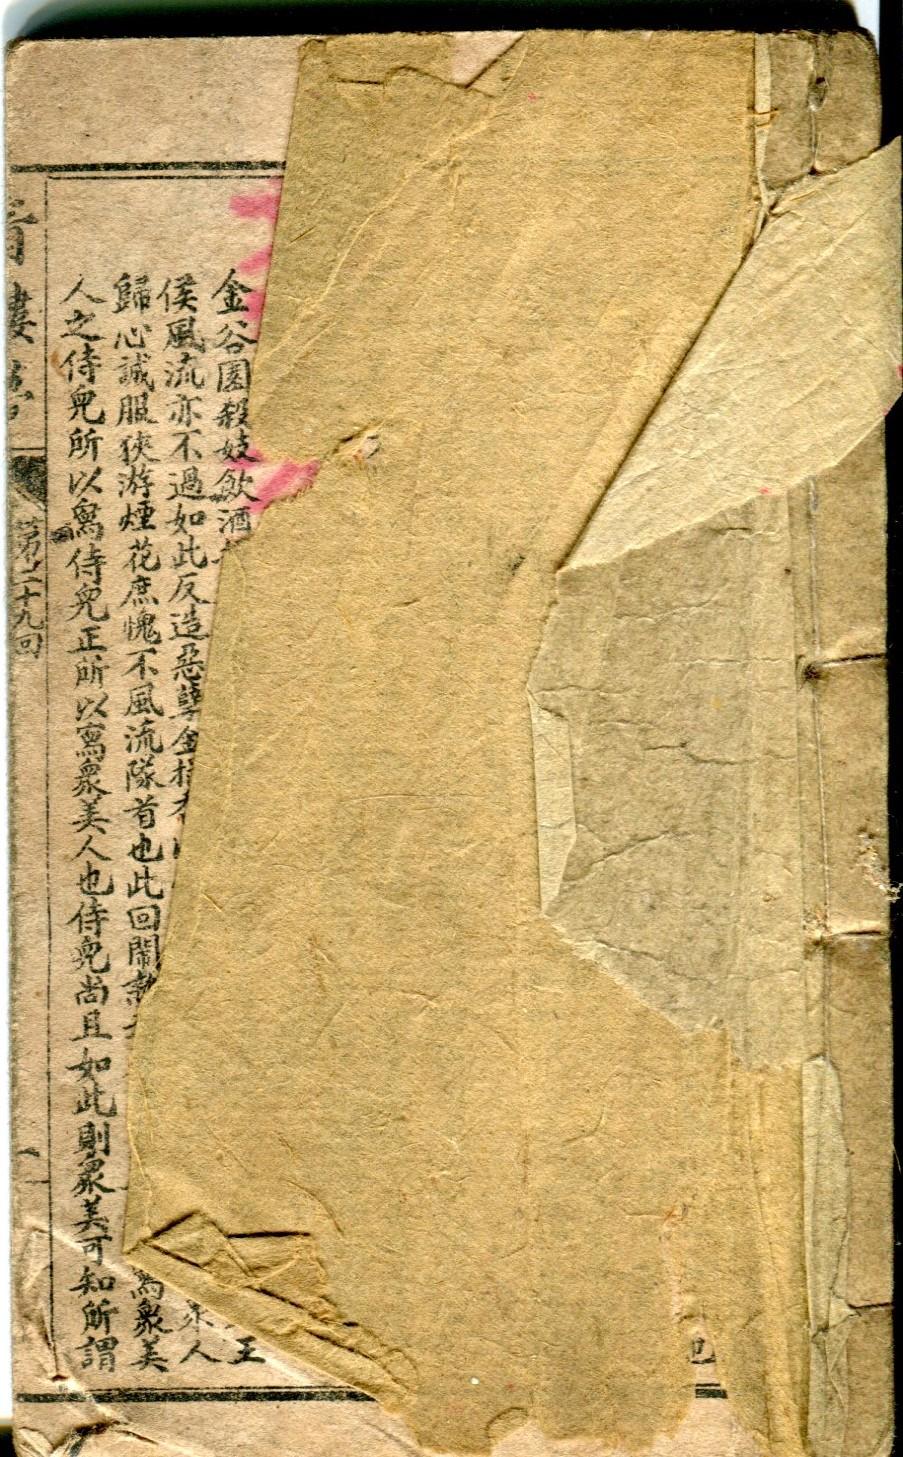 也
金谷園殺妓飲酒
王
侯風流亦不過如此反造惡孽金
人
歸心誠服狹游煙花庶愧不風流隊首也此回鬧熱
寫衆美
人之侍兒所以寫侍兒正所以寫衆美人也侍兒尚且如此則衆美可知所謂
青樓夢
第二十九回
一